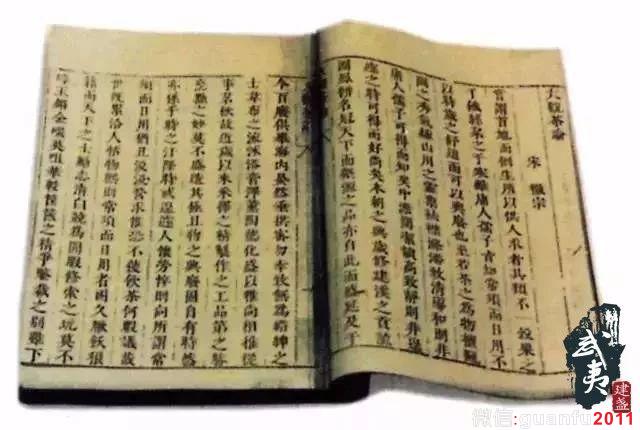 大觀茶論
宋 徽宗
嘗謂首地而倒生所以供人求者其類不 穀粟之
于飢絲枲之于寒雖庸人孺子皆知常須而日用不
以時歲之舒迫而可以興廢也至若茶之為物擅甌
閩之秀氣鍾山川之靈稟祛襟滌滯致清導和則非
庸人孺子可得而知矣沖澹簡潔韻高致靜則非遑
遽之時可得而好尚矣本朝之興歲修建溪之貢龍
團鳳餅名冠天下而壑源之品亦自此而盛延及于
今百廢俱舉海內晏然垂拱密勿幸致無為縉紳之
士韋布之流沐浴膏澤薰陶德化盛以雅尚相推從
事茗飲故近歲以來采擇之精製作之工品第之勝
烹點之妙莫不盛造其極且物之興廢固自有時然
亦係乎時之汙隆時或遑遽人懷勞悴則向所謂常
須而日用猶且汲汲營求惟恐不獲飲茶何暇議哉
世既累洽人恬物熙則常須而日用者固久厭飫狼
籍而天下之士勵志清白競為閒暇修索之玩莫不
碎玉鏘金啜英咀華較篋笥之精爭鑒裁之別雖下
武夷
建盏
微信:guanfu2011